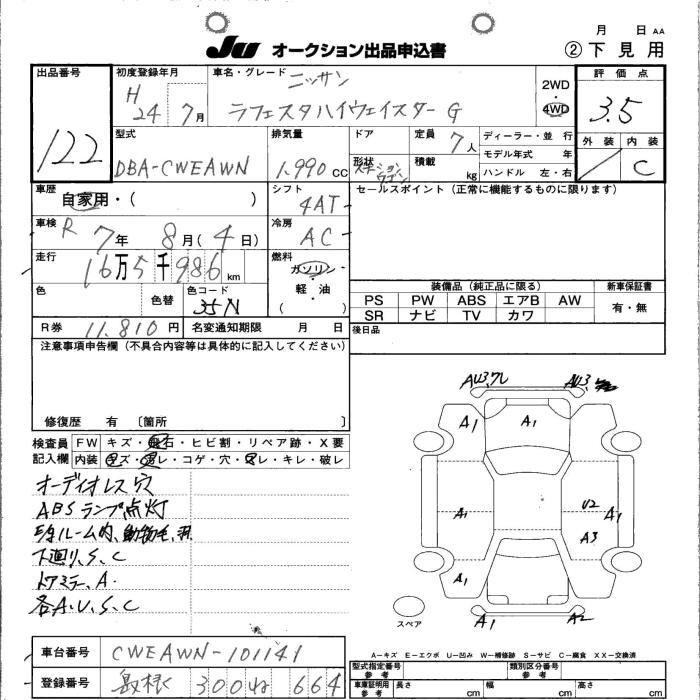 月 日 AA
Ju オークション出品申込書
②下見用
出品番号
122
初度登録年月
H 24 7月
車名・グレード
ニッサン
ラフェスタハイウェイスターG
2WD・4WD
評価点
3.5
外装 内装
C
型式
DBA-CWEAWN
排気量
1.990 CC
ドア
形状
定員
7人
積載
kg
ディーラー・並 行
モデル年式 年
ハンドル 左・右
車歴
自家用・( )
シフト
4AT
セールスポイント(正常に機能するものに限ります)
車検
R 7年 8月(4日)
冷房
AC
走行
16万5千986km
燃料
ガソリン・軽油・( )
色
色替
色コード
35N
R券 11.810円
名変通知期限 月 日
装備品(純正品に限る)
新車保証書
PS PW ABS エアB AW
SR ナビ TV カワ
有・無
後日品
注意事項申告欄(不具合内容等は具体的に記入してください)
修復歴 有 〔箇所 〕
検査員記入欄
FW キズ・飛石・ヒビ割・リペア跡・X要
内装 キズ・汚レ・コゲ・穴・スレ・キレ・破レ
オーディオレス穴
ABSランプ点灯
下廻り、S、C
ドアミラー、A.
各A、U、S、C
AU3 ワレ
AU3
A1
A1
A1
U2
A1
A3
A1
A1
A2
スペア
A-キズ E-エクボ U-凹み W-補修跡 S-サビ C-腐食 XX-交換済
車台番号
CWEAWN-101141
登録番号
島根 300 ね 664
型式指定番号 参考
類別区分番号 参考
車庫証明用 参考
長さ cm
幅 cm
高さ cm